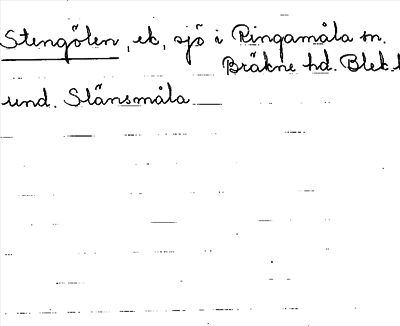 Stengölen, ek, sjö i Ringamåla sn.
Bräkne hd. Blek.l
und. Slänsmåla